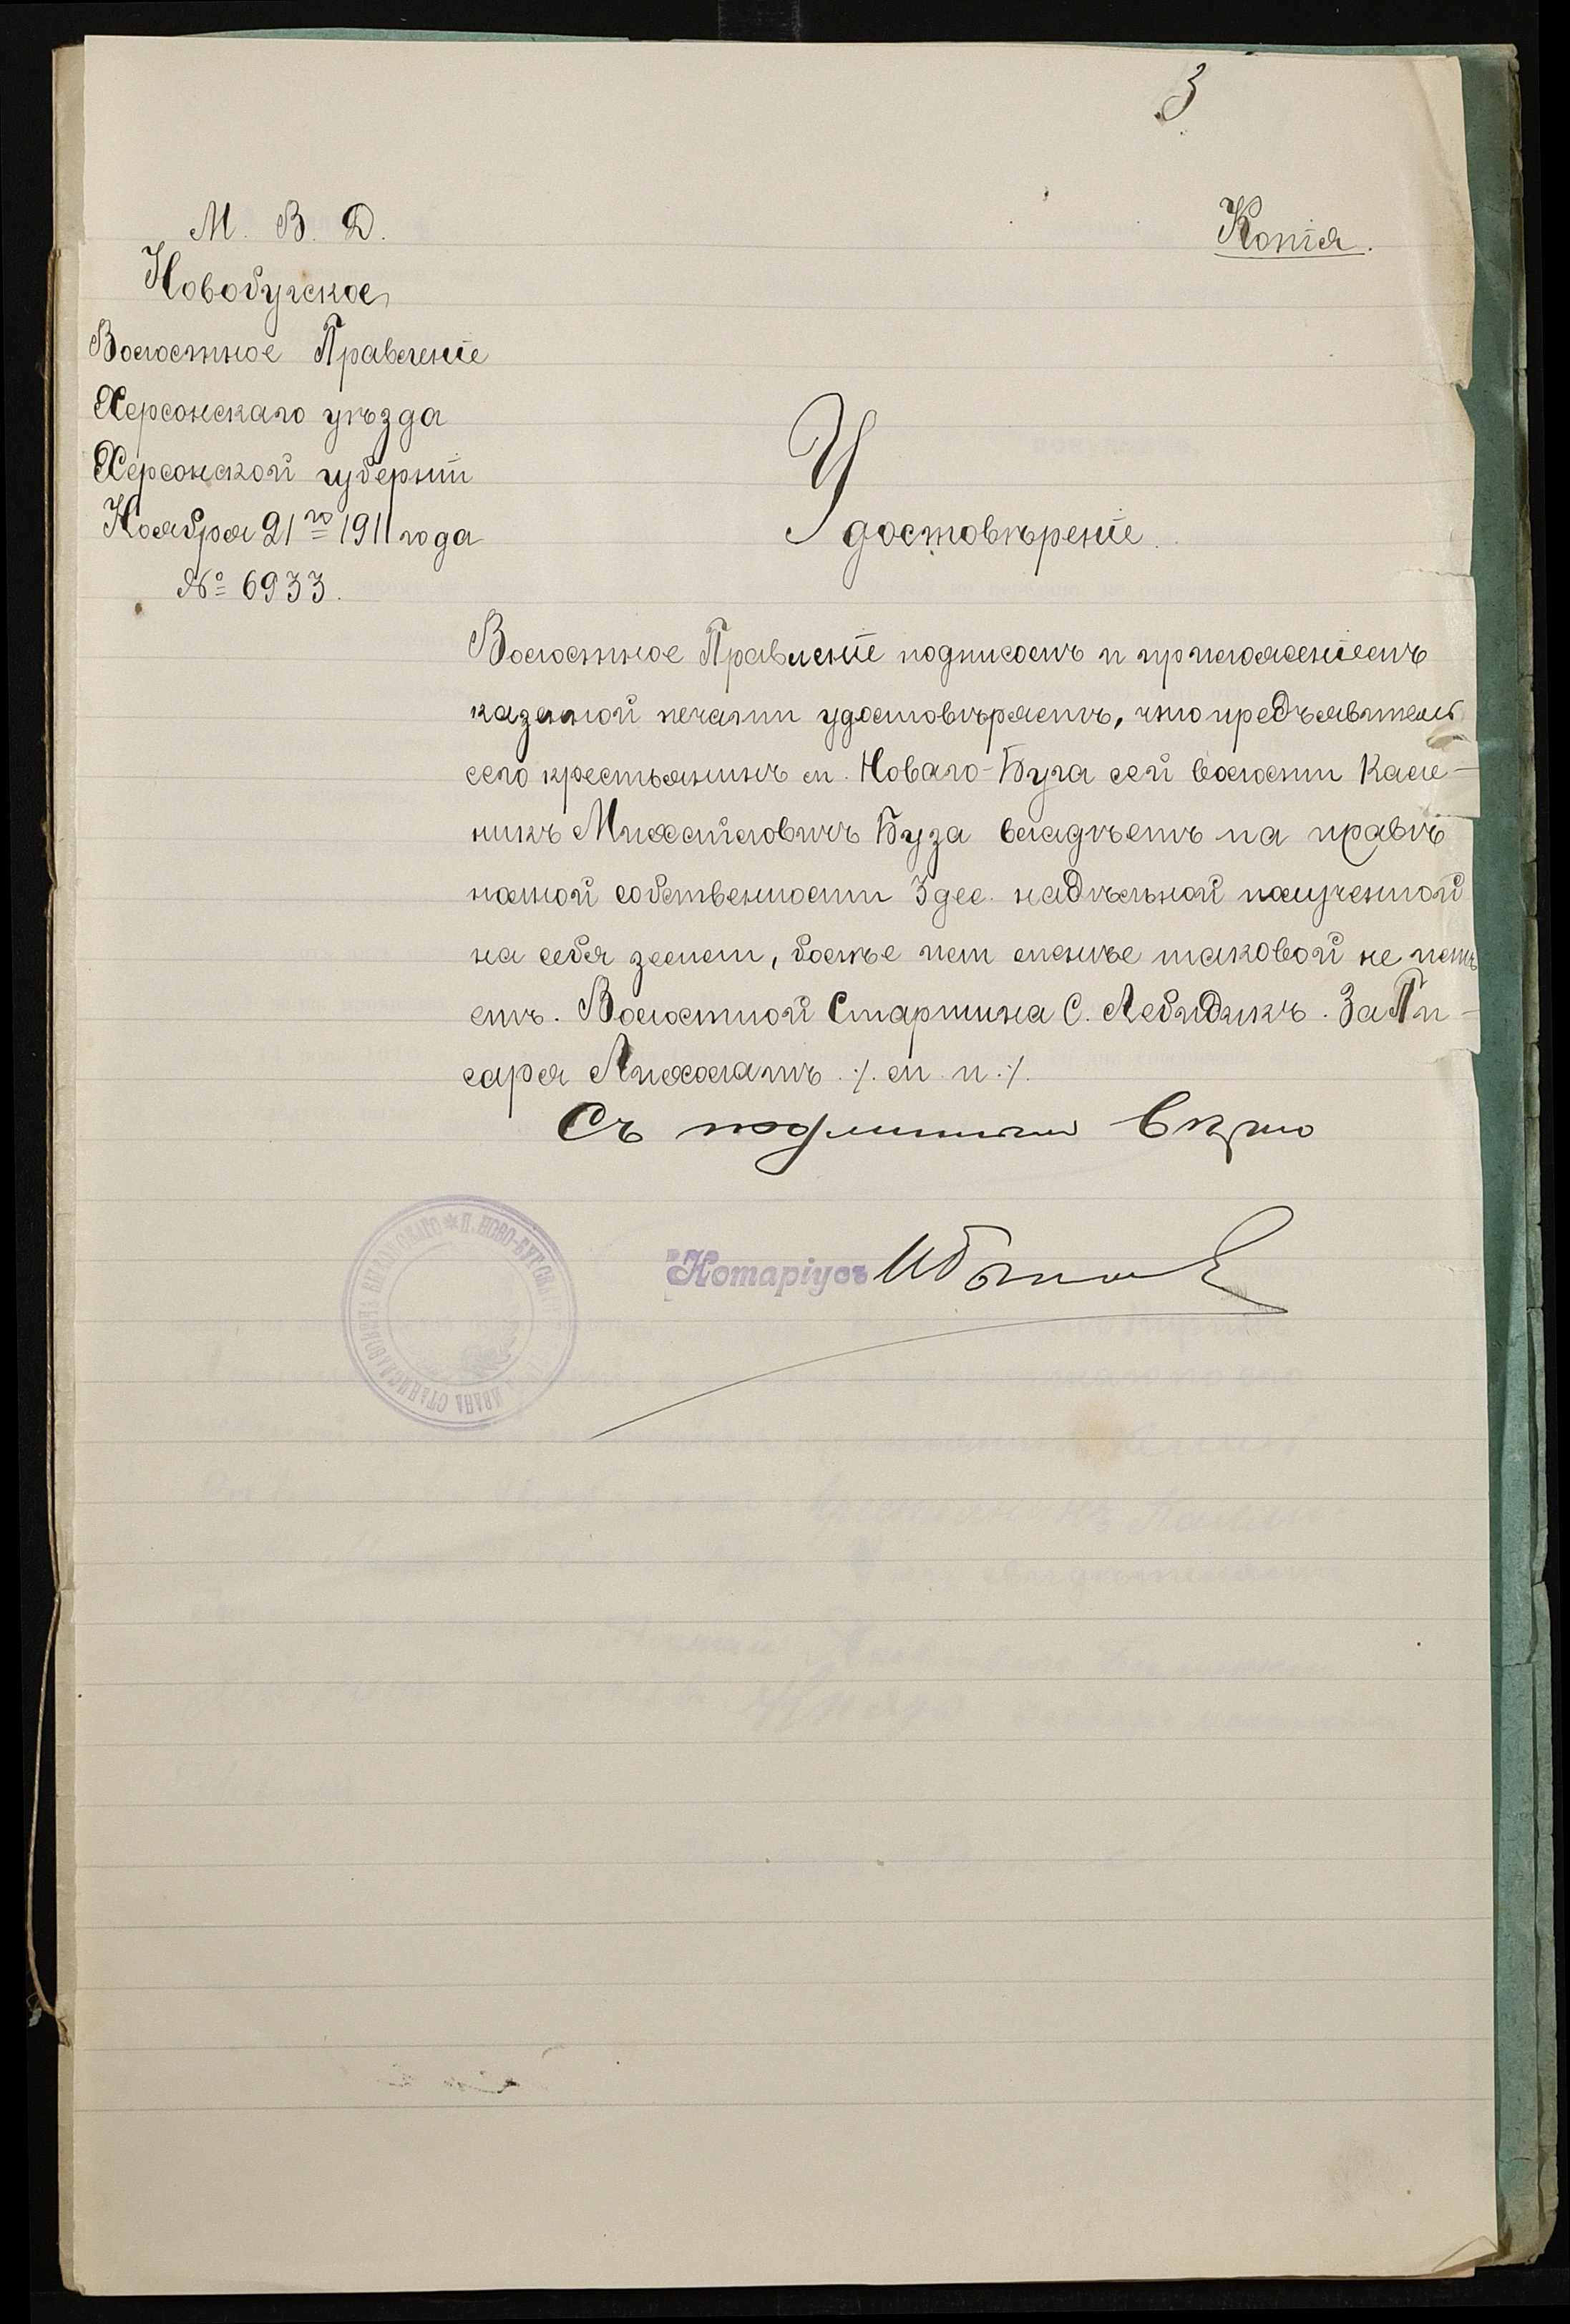 3
Копія.
М. В. Д.
Новобугское
Волостное Правленіе
Херсонскаго уѣзда
Херсонской губерніи
Ноября 21го 1911 года
№ 6933.
Удостовѣреніе.
Волостное Правленіе подписомъ и приложеніемъ
казенной печати удостовѣряетъ, что предъявитель
сего крестьянинъ м. Новаго-Буга сей волости Кали-
никъ Михайловичъ Буза владѣетъ на правѣ
полной собственности 3 дес. надѣльной полученной
на себя земли, болѣе или менѣе таковой не имѣ
етъ. Волостной Старшина С. Лебидикъ. За Пи-
саря Лихолатъ ./. м. п. ./.
Съ подлиннымъ вѣрно
Нотаріусъ
П. НОВО-БУГСКІЙ ИВАНА СТАНИСЛАВОВИЧА